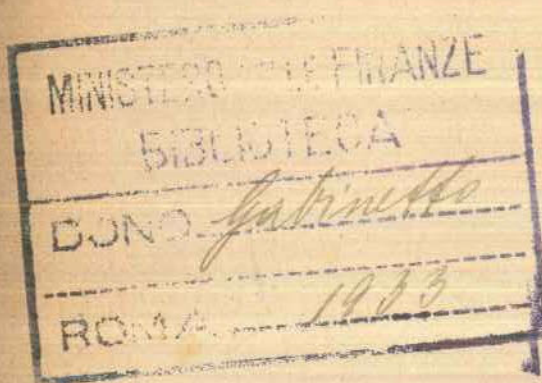 MINISTERO DELLE FINANZE
BIBLIOTECA
DONO Gabinetto
ROMA 1933